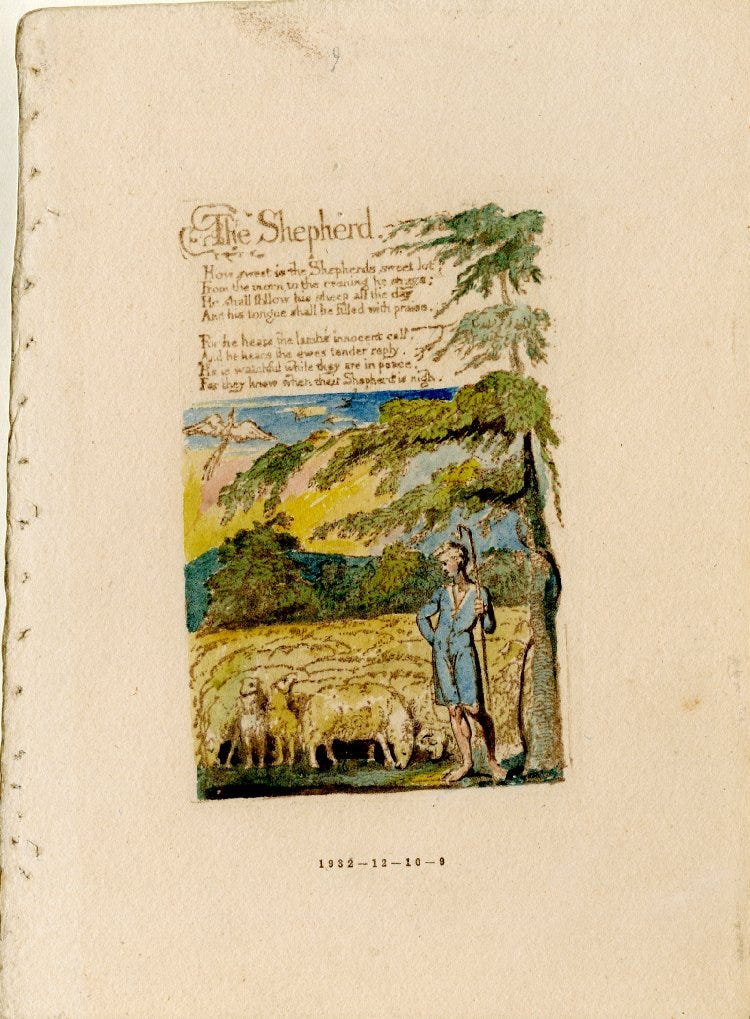 9
The Shepherd.
How sweet is the Shepherds sweet lot,
From the morn to the evening he strays:
He shall follow his sheep all the day
And his tongue shall be filled with praise.
For he hears the lambs innocent call,
And he hears the ewes tender reply,
He is watchful while they are in peace,
For they know when their Shepherd is nigh.
1932-12-10-9